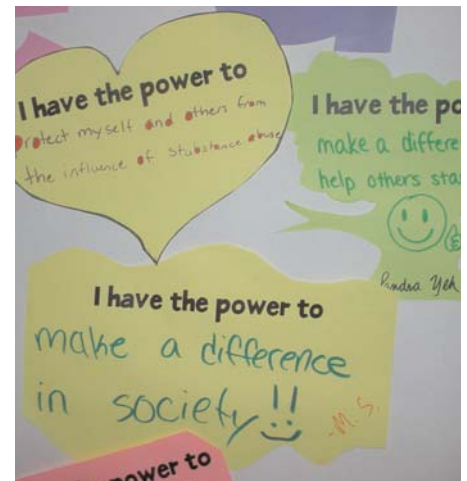 I have the power to
protect myself and others from
the influence of Stubstance abuse
I have the po
make a differe
help others sta
Yeh
I have the power to
make a difference
in society!!
-M.S.
power to